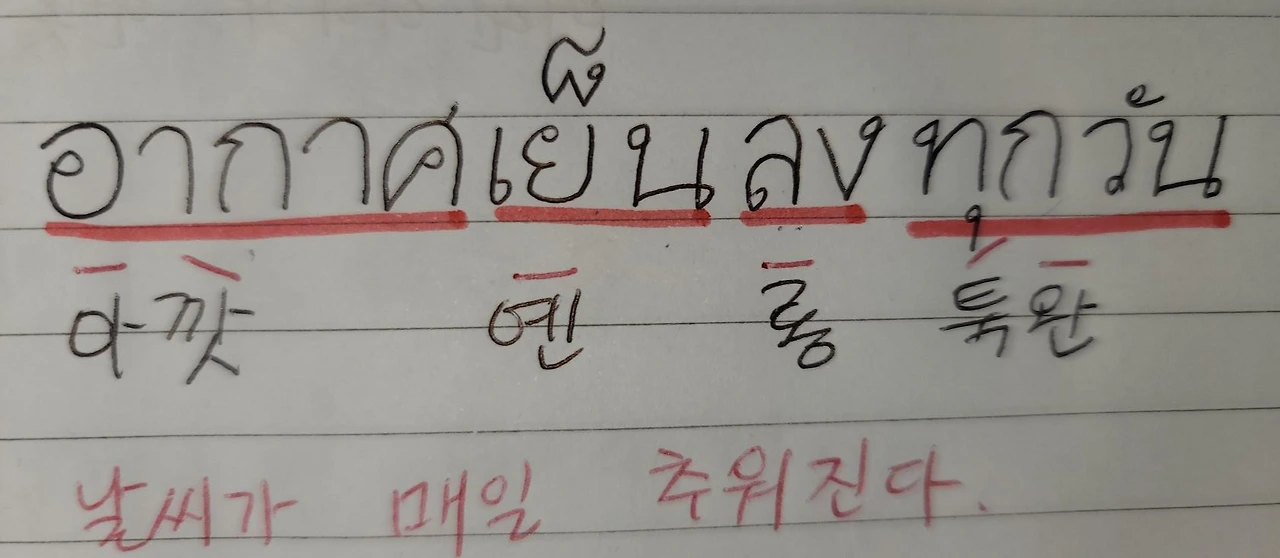 อากาศเย็น ลง ทุกวัน
아깟 옌 롱 툭완
날씨가 매일 추워진다.